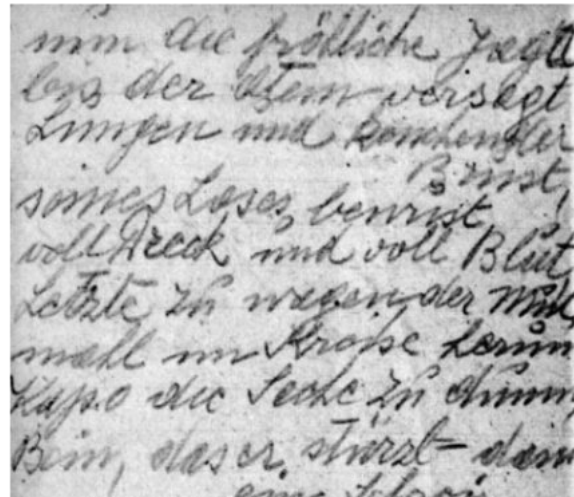 nun die fröhliche Jagd
bis der Atem versagt
Lungen und keuchender
Brust,
seines Loses, bewust
voll Dreck und voll Blut
Letzte zu wagen der Mut,
mahl im Kreise herum
Kapo die Sache zu dumm
Bein, das er stürzt - dann
ein